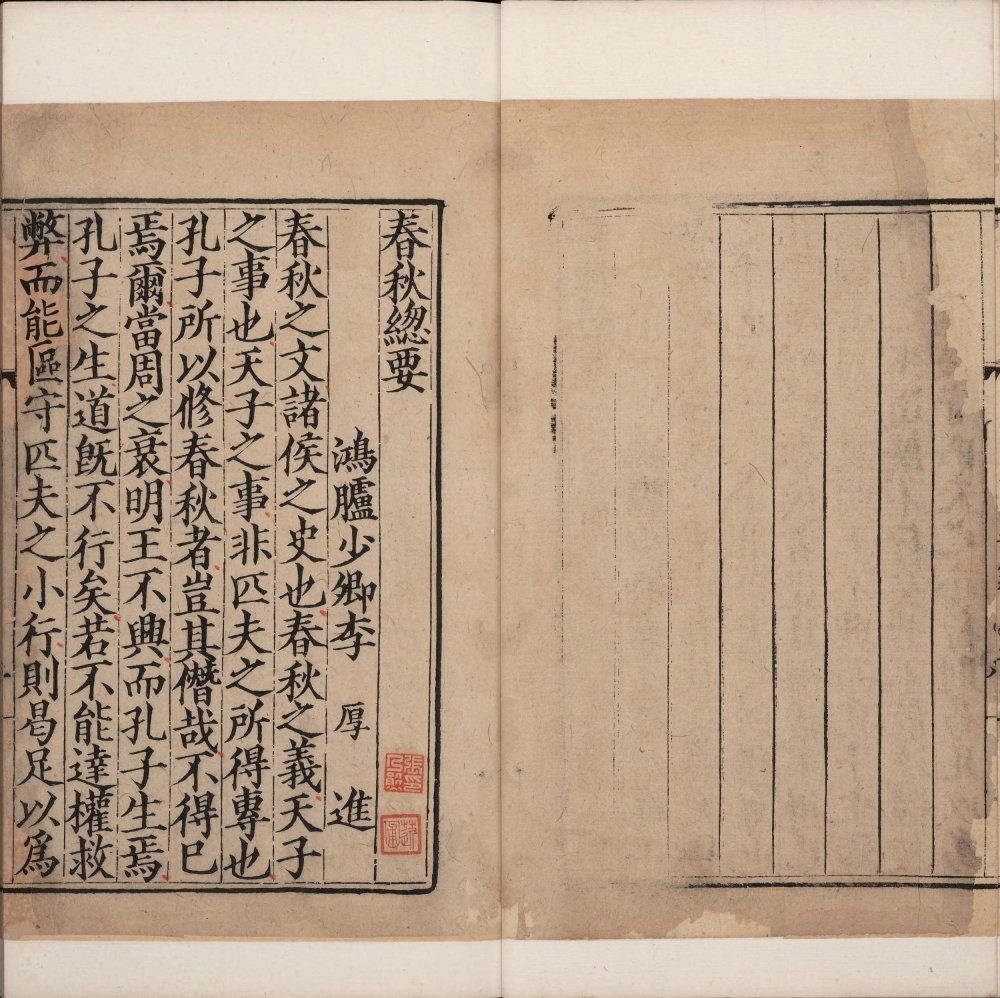 春秋緫要
鴻臚少卿李厚進
春秋之文諸侯之史也春秋之義天子
之事也天子之事非匹夫之所得專也
孔子所以脩春秋者豈其僭哉不得已
焉爾當周之衰明王不興而孔子生焉
孔子之生道旣不行矣若不能達權救
弊而能區守匹夫之小行則曷足以爲